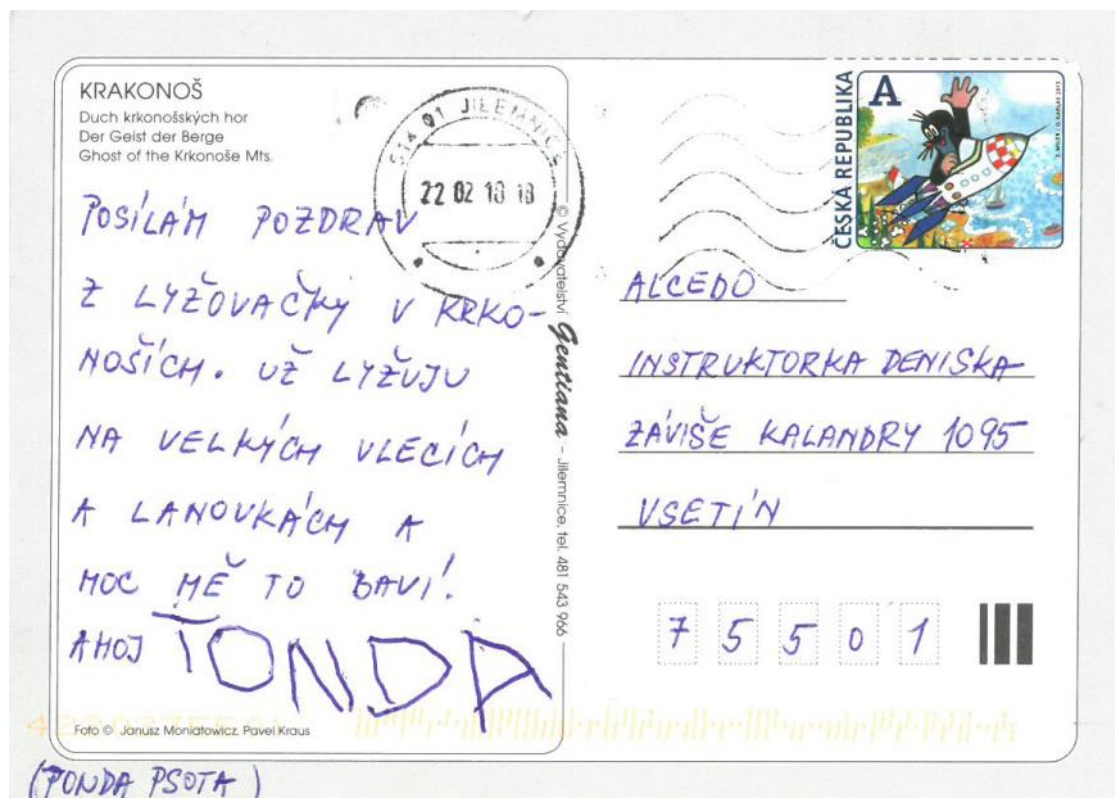 KRAKONOŠ
Duch krkonošských hor
Der Geist der Berge
Ghost of the Krkonoše Mts.
POSÍLÁM POZDRAV
Z LYŽOVAČKY V KRKO-
NOŠÍCH. UŽ LYŽUJU
NA VELKÝCH VLECÍCH
A LANOVKÁCH A
MOC MĚ TO BAVÍ!
AHOJ TONDA
Foto © Janusz Moniatowicz, Pavel Kraus
(TONDA PSOTA)
514 01 JILEMNICE
22 02 18 18
© Vydavatelství Gentiana - Jilemnice, tel. 481 543 966
ČESKÁ REPUBLIKA
A
ALCEDO
INSTRUKTORKA DENISKA
ZÁVIŠE KALANDRY 1095
VSETÍN
7 5 5 0 1